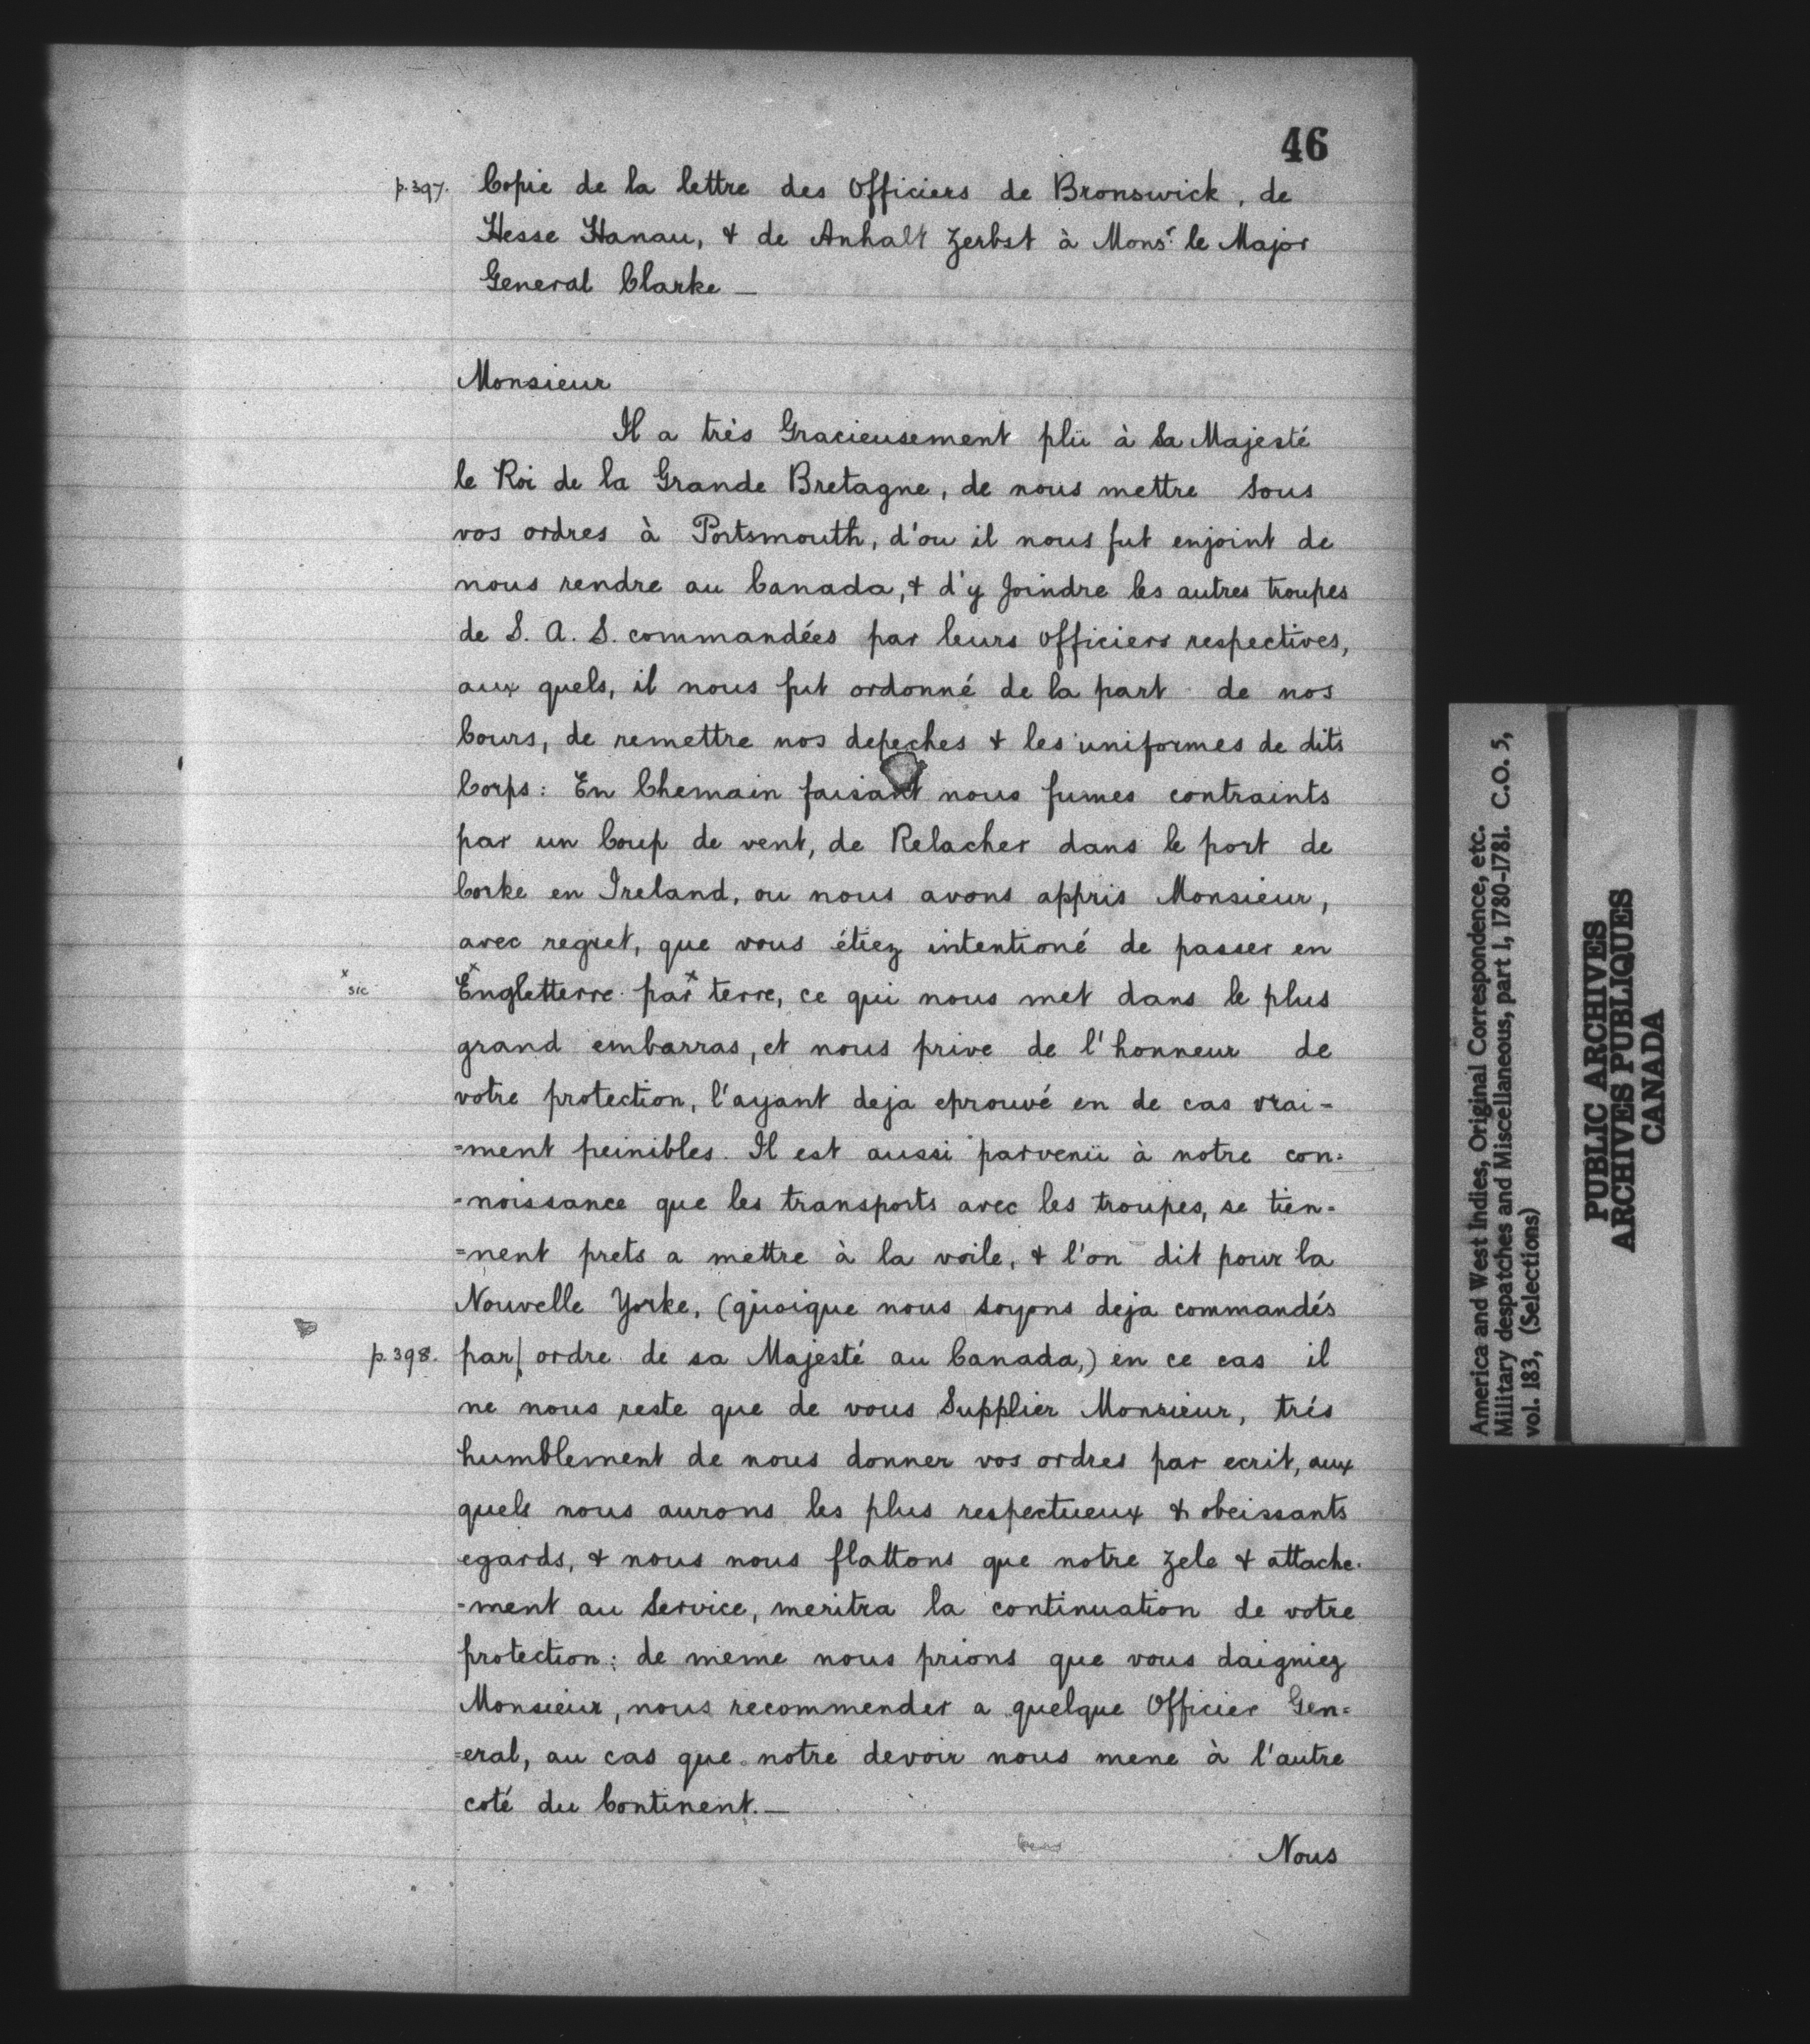 46
p.397. Copie de la lettre des Officiers de Bronswick, de
Hesse Hanau, & de Anhalt Zerbst à Monsr. le Major
General Clarke —
Monsieur
Il a très Gracieusement plü à Sa Majesté
le Roi de la Grande Bretagne, de nous mettre Sous
vos ordres à Portsmouth, d'ou il nous fut enjoint de
nous rendre au Canada, & d'y Joindre les autres troupes
de S. A. S. commandées par leurs officiers respectives,
aux quels, il nous fut ordonné de la part de nos
Cours, de remettre nos depeches & les uniformes de dits
Corps: En Chemain faisant nous fumes contraints
par un Coup de vent, de Relacher dans le port de
Corke en Ireland, ou nous avons appris Monsieur,
avec regret, que vous étiez intentioné de passer en
x sic Engletterre x par x terre, ce qui nous met dans le plus
grand embarras, et nous prive de l'honneur de
votre protection, l'ayant deja eprouvé en de cas vrai=
=ment peinibles. Il est aussi parvenü à notre con=
=noissance que les transports avec les troupes, se tien=
=nent prets a mettre à la voile, & l'on dit pour la
Nouvelle Yorke, (quoique nous soyons deja commandés
p.398. par/ ordre de sa Majesté au Canada,) en ce cas il
ne nous reste que de vous Supplier Monsieur, trés
humblement de nous donner vos ordres par ecrit, aux
quels nous aurons les plus respectueux & obeissants
egards, & nous nous flattons que notre Zele & attache=
=ment au Service, meritra la continuation de votre
protection: de meme nous prions que vous daigniez
Monsieur, nous recommender a quelque Officier Gen=
=eral, au cas que notre devoir nous mene à l'autre
coté du Continent. —
Nous
America and West Indies, Original Correspondence, etc.
Military despatches and Miscellaneous, part 1, 1780-1781. C.O. 5,
vol. 183, (Selections)
PUBLIC ARCHIVES
ARCHIVES PUBLIQUES
CANADA